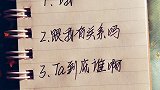 2.跟我有关系吗
3.Ta到底谁啊